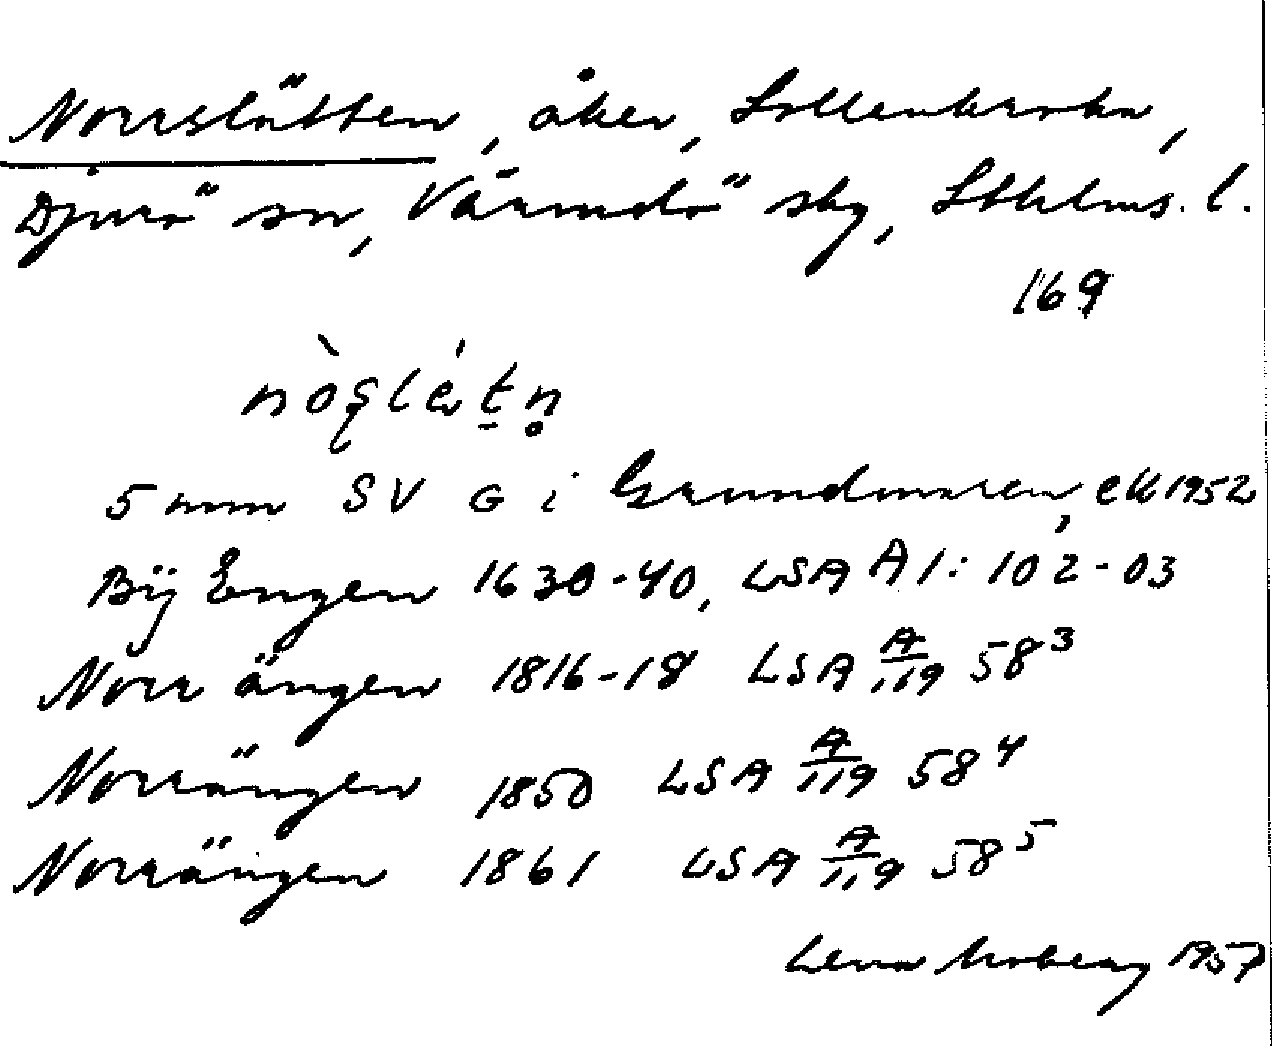 Norrslätten, åker, Sollenkroka,
Djurö sn, Värmdö skg, Sthlms. l.
169
5 mm SV G i Grundmaren, ek 1952
Bij Engen 1630-40, LSA A1: 102-03
Norr ängen 1816-18 LSA A/119 58³
Norrängen 1850 LSA A/119 58⁴
Norrängen 1861 LSA A/119 58⁵
Lena Moberg 1957